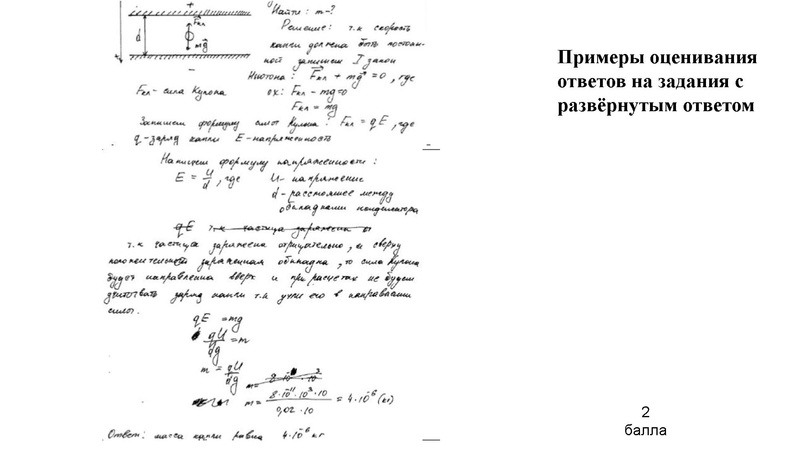 +
Найти: m-?
Решение: т.к скорость
капли должна быть постоян-
ной запишем I закон
Ньютона: Fкл + mg = 0, где
d
Fкл
mg
−
Fкл - сила Кулона
ox: Fкл - mg=0
Fкл = mg
Запишем формулу силы Кулона: Fкл = qE, где
q - заряд капли E - напряженность
Напишем формулу напряженности:
E = U/d, где U - напряжение
d - расстояние между
обкладками конденсатора
т.к частица заряжена отрицательно, а сверху
положительно заряженная обкладка, то сила Кулона
будет направлена вверх и при расчетах не будем
учитывать заряд капли т.к учли его в направлении
силы.
qE = mg
qU/dg = m
m = qU/dg
m = 8·10⁻¹¹·10³·10/0,02·10 = 4·10⁻⁶ (кг)
Ответ: масса капли равна 4·10⁻⁶ кг
Примеры оценивания
ответов на задания с
развёрнутым ответом
2
балла